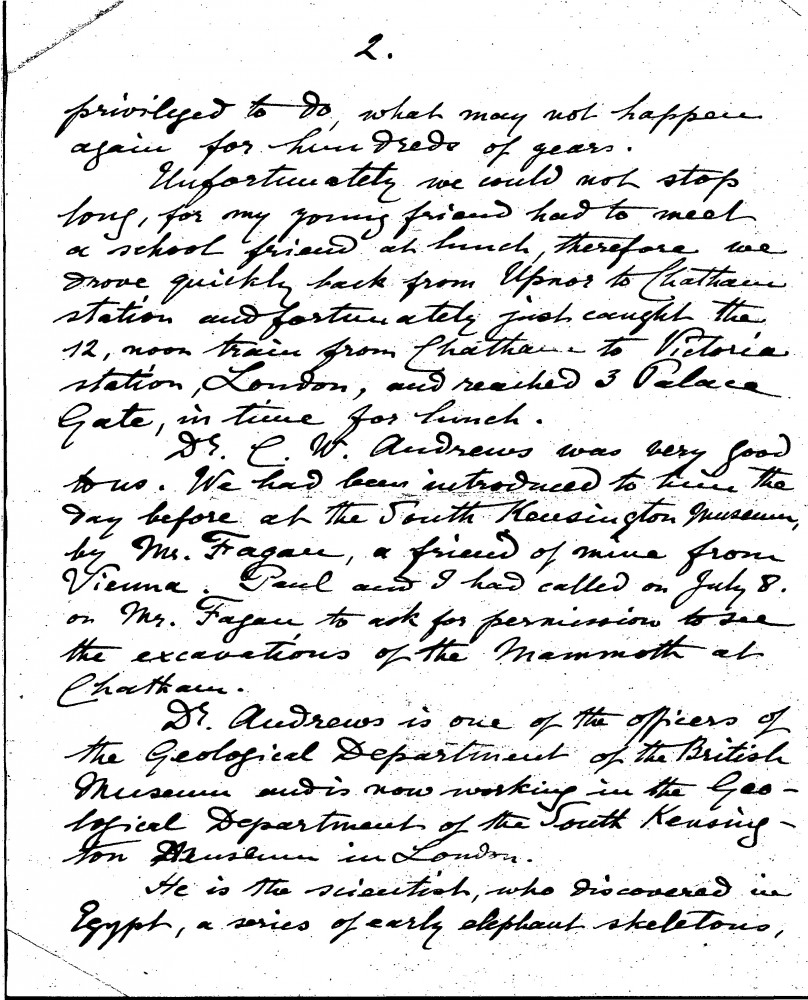 2.
privileged to do, what may not happen
again for hundreds of years.
Unfortunately we could not stop
long, for my young friend had to meet
a school friend at lunch, therefore we
drove quickly back from Upnor to Chatham
station and fortunately just caught the
12, noon train from Chatham to Victoria
station, London, and reached 3 Palace
Gate, in time for lunch.
Dr. C. W. Andrews was very good
to us. We had been introduced to him the
day before at the South Kensington Museum,
by Mr. Fagan, a friend of mine from
Vienna. Paul and I had called on July 8.
on Mr. Fagan, to ask for permission to see
the excavations of the Mammoth at
Chatham.
Dr. Andrews is one of the officers of
the Geological Department of the British
Museum and is now working in the Geo-
logical Department of the South Kensing-
ton Museum in London.
He is the scientist, who discovered in
Egypt, a series of early elephant skeletons,